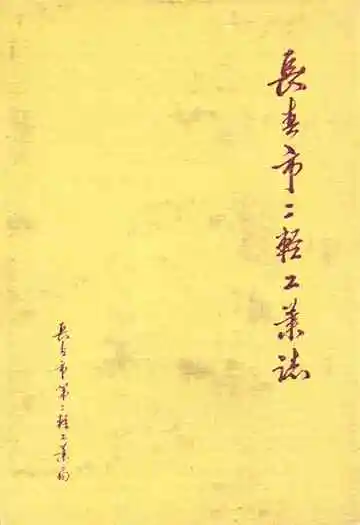 長春市二轻工業誌
長春市第二轻工業局